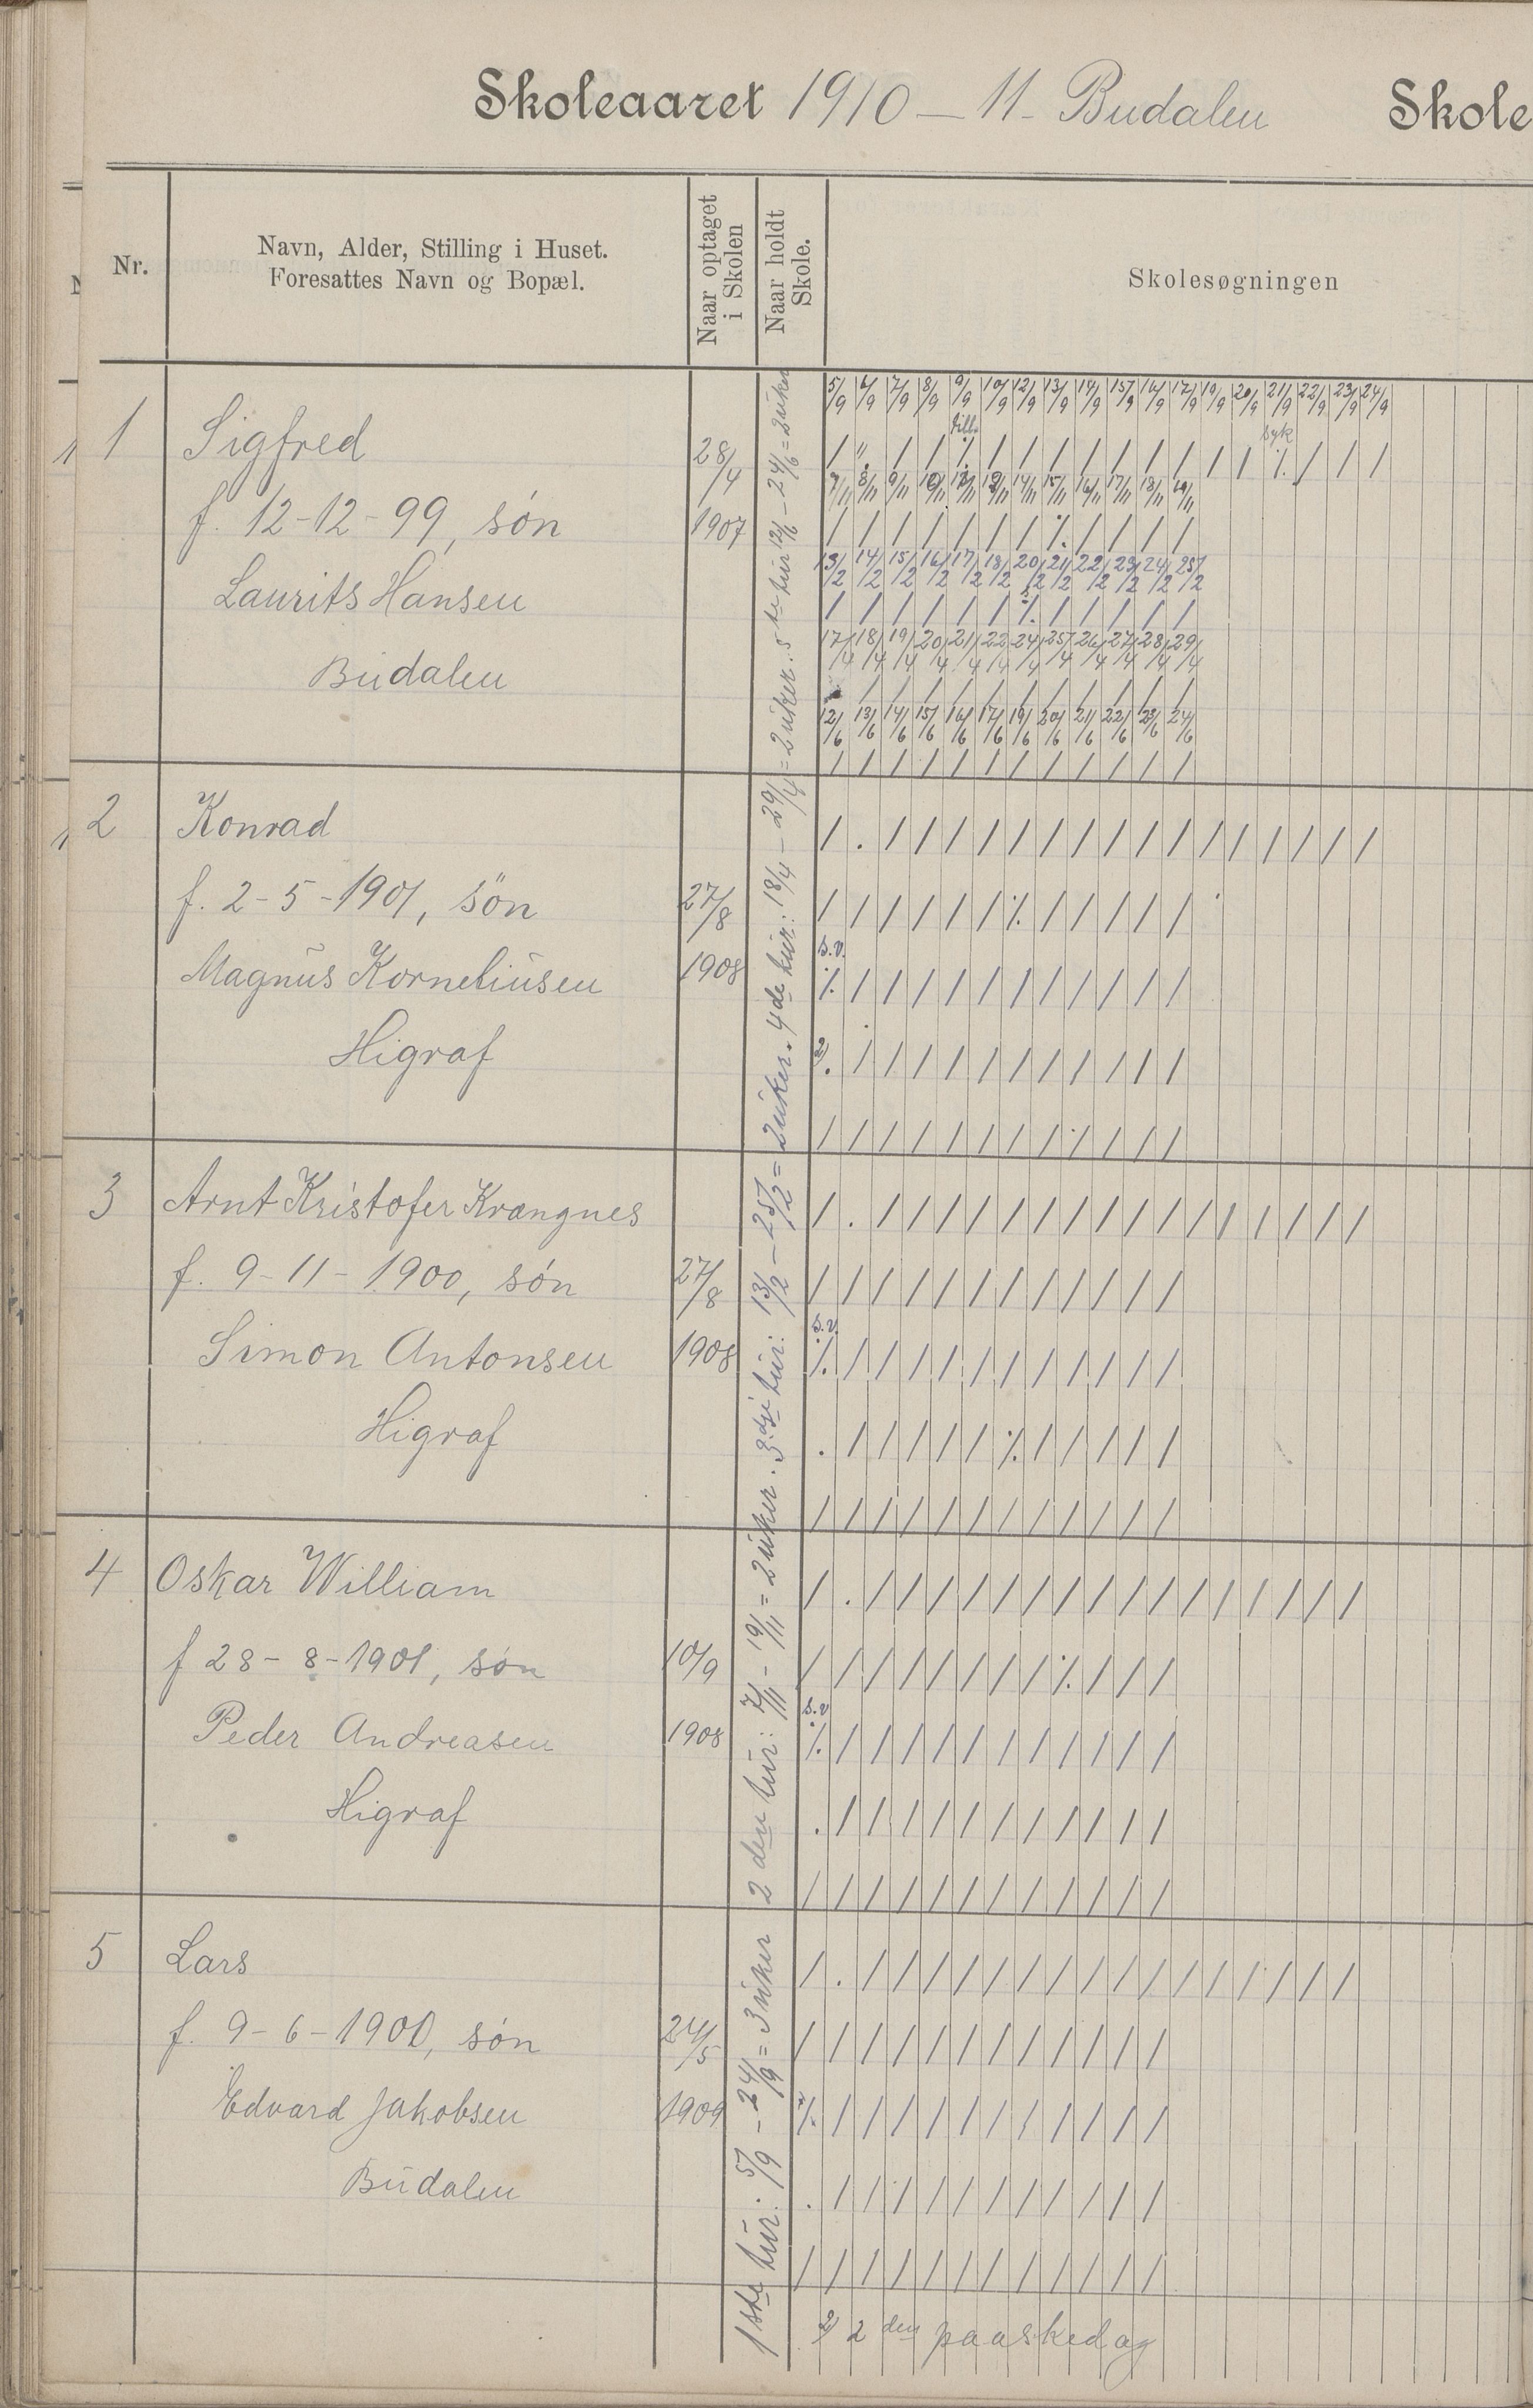 Skoleaaret 1910 – 11 – Budalen Skole
Nr.
Navn, Alder, Stilling i Huset.
Foresattes Navn og Bopæl.
Naar optaget
i Skolen
Naar holdt
Skole.
Skolesøgningen
1ste tur: 5/9 – 24/9 = 3 uker 2den tur: 7/11 – 19/11 = 2 uker. 3dje tur: 13/2 – 25/2 = 2 uker. 4de tur: 18/4 – 29/4 = 2 uker. 5te tur 12/6 – 24/6 = 2 uker
5/9 6/9 7/9 8/9 9/9 10/9 12/9 13/9 14/9 15/9 16/9 17/9 19/9 20/9 21/9 22/9 23/9 24/9
syk
1 Sigfred 28/4
/ " / / / / / / / / / / / / ·/. / / /
7/11 8/11 9/11 10/11 11/11 12/11 14/11 15/11 16/11 17/11 18/11 19/11
f. 12-12-99, søn 1907
/ / / / / / / ·/. / / / /
13/2 14/2 15/2 16/2 17/2 18/2 20/2 21/2 22/2 23/2 24/2 25/2
Laurits Hansen
/ / / / / / ·/. / / / / /
17/4 18/4 19/4 20/4 21/4 22/4 24/4 25/4 26/4 27/4 28/4 29/4
Budalen
/ / / / / / / / / / /
12/6 13/6 14/6 15/6 16/6 17/6 19/6 20/6 21/6 22/6 23/6 24/6
/ / / / / / / / / / / /
2 Konrad
/ . / / / / / / / / / / / / / / / /
f. 2-5-1901, søn 27/8
/ / / / / / ·/. / / / / /
s.v.
Magnus Korneliusen 1908
·/. / / / / / / / / / / /
Higraf
2) . / / / / / / / / / / /
/ / / / / / / / / / / /
3 Arnt Kristofer Krangnes
/ . / / / / / / / / / / / / / / / /
f. 9-11-1900, søn 27/8
/ / / / / / / / / / / /
s.v.
Simon Antonsen 1908
·/. / / / / / / / / / / /
Higraf
. / / / / / ·/. / / / / /
/ / / / / / / / / / / /
4 Oskar William
/ . / / / / / / / / / / / / / / / /
f 28-8-1901, søn 10/9
/ / / / / / / / ·/. / / /
s.v
Peder Andreasen 1908
·/. / / / / / / / / / / /
Higraf
. / / / / / / / / / / /
/ / / / / / / / / / / /
5 Lars
/ . / / / / / / / / / / / / / / / /
f. 9-6-1900, søn 24/5
/ / / / / / / / / / / /
Edvard Jakobsen 1909
·/. / / / / / / / / / / /
Budalen
. / / / / / / / / / / /
/ / / / / / / / / / / /
2) 2den paaskedag